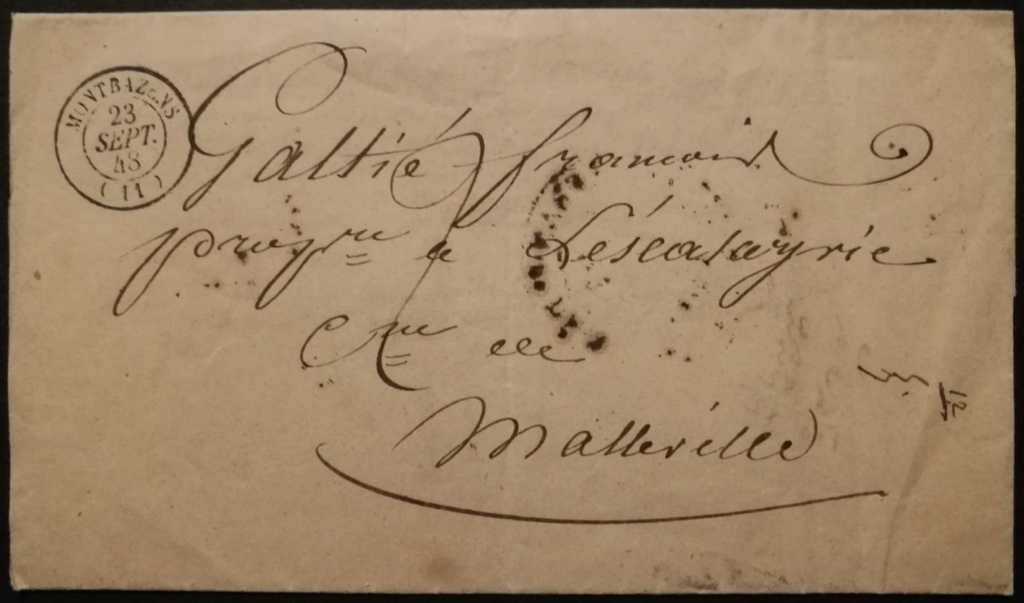 MONTBAZENS
23
SEPT.
48
(11)
Galtié francois
propre a Léscalayrie
Cne de
Malleville
12